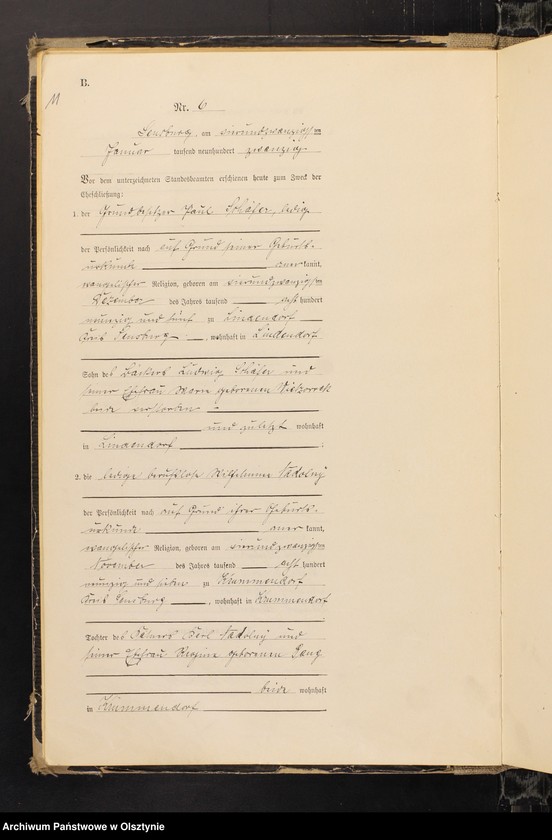 B.
11
Nr. 6
Sensburg, am vierundzwanzigsten
Januar tausend neunhundert zwanzig.
Vor dem unterzeichneten Standesbeamten erschienen heute zum Zweck der
Eheschließung:
1. der Grundbesitzer Paul Schäfer, ledig
der Persönlichkeit nach auf Grund seiner Geburts-
urkunde anerkannt,
evangelischer Religion, geboren am vierundzwanzigsten
Dezember des Jahres tausend achthundert
neunzig und fünf zu Lindendorf
Kreis Sensburg, wohnhaft in Lindendorf
Sohn des Ludwig Schäfer und
seiner Ehefrau geborenen
beide verstorben
und zuletzt wohnhaft
in Lindendorf;
2. die ledige berufslose Wilhelmine Nadolny
der Persönlichkeit nach auf Grund ihrer Geburts-
urkunde anerkannt,
evangelischer Religion, geboren am vierundzwanzigsten
November des Jahres tausend achthundert
neunzig und sieben zu Krummendorf
Kreis Sensburg, wohnhaft in Krummendorf
Tochter des Karl Nadolny und
seiner Ehefrau Regine geborenen
beide wohnhaft
in Krummendorf
Archiwum Państwowe w Olsztynie